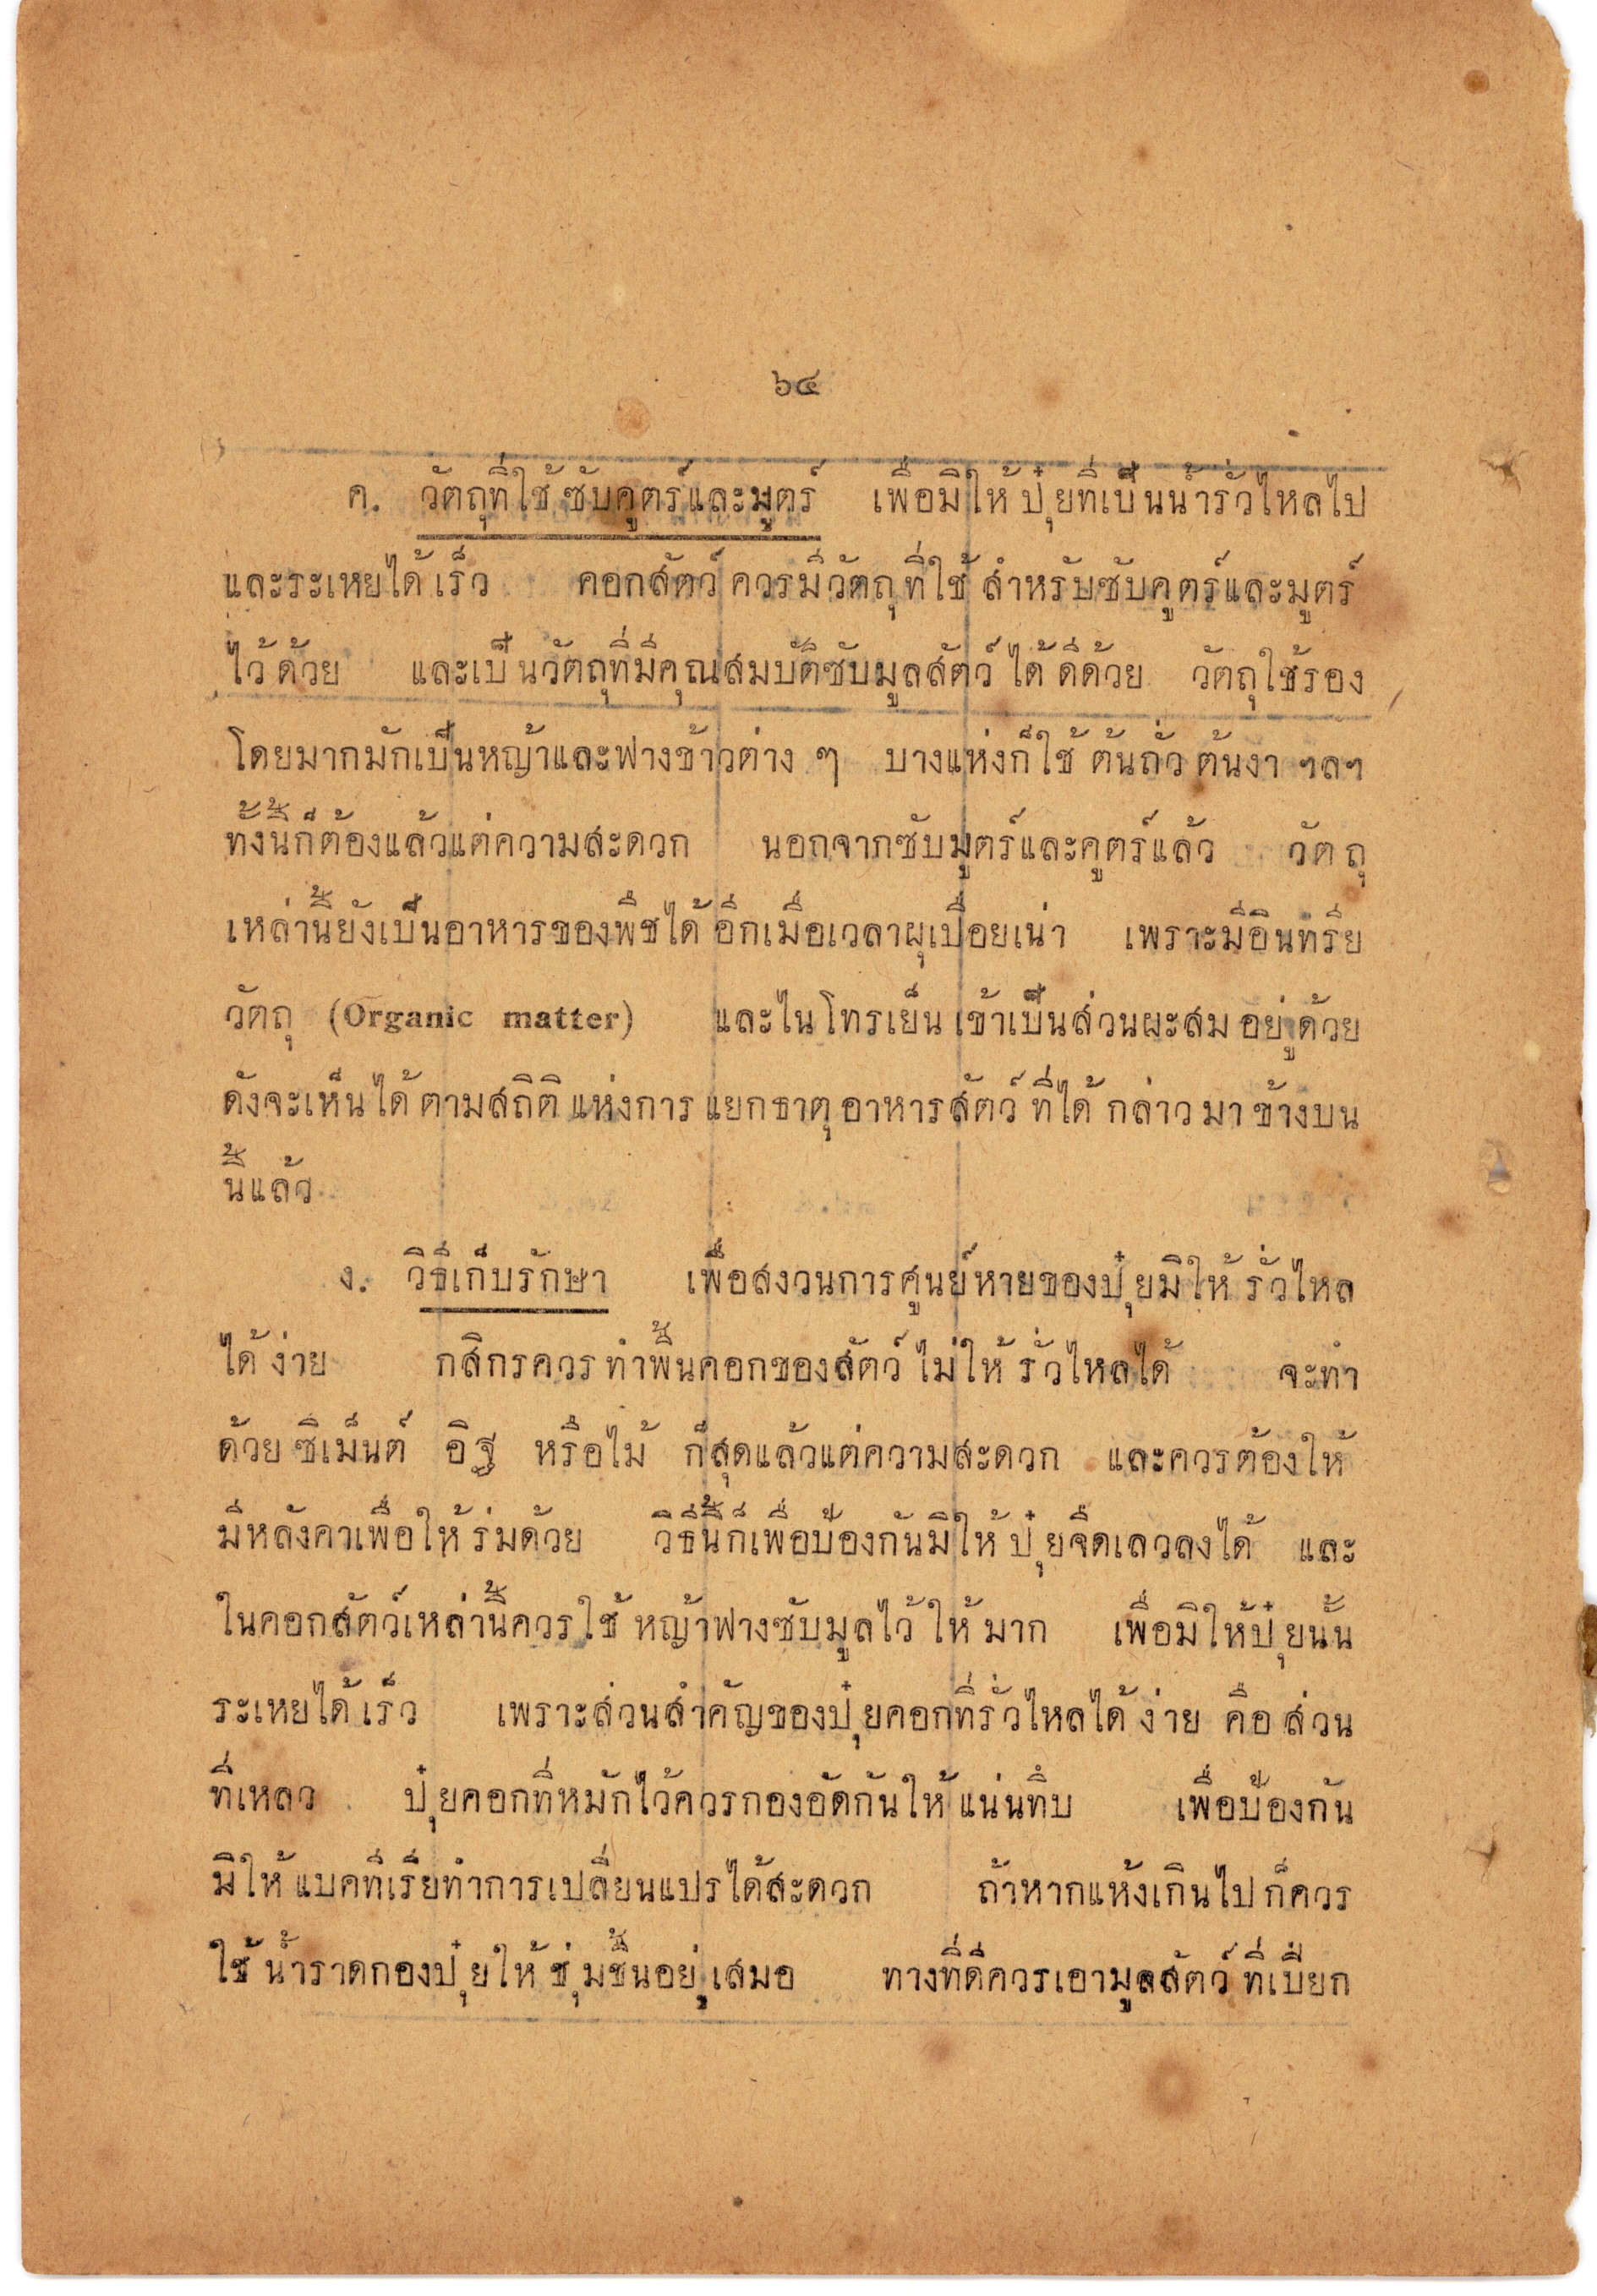 ๖๔
ค. วัตถุที่ใช้ซับคูตร์และมูตร์ เพื่อมิให้ปุ๋ยที่เป็นน้ำรั่วไหลไป
และระเหยได้เร็ว คอกสัตว์ควรมีวัตถุที่ใช้สำหรับซับคูตร์และมูตร์
ไว้ด้วย และเป็นวัตถุที่มีคุณสมบัติซับมูลสัตว์ได้ดีด้วย วัตถุใช้รอง
โดยมากมักเป็นหญ้าและฟางข้าวต่าง ๆ บางแห่งก็ใช้ต้นถั่วต้นงา ฯลฯ
ทั้งนี้ก็ต้องแล้วแต่ความสะดวก นอกจากซับมูตร์และคูตร์แล้ว วัตถุ
เหล่านี้ยังเป็นอาหารของพืชได้อีกเมื่อเวลาผุเปื่อยเน่า เพราะมีอินทรีย
วัตถุ (Organic matter) และไนโทรเย็นเข้าเป็นส่วนผะสมอยู่ด้วย
ดังจะเห็นได้ตามสถิติแห่งการแยกธาตุอาหารสัตว์ที่ได้กล่าวมาข้างบน
นี้แล้ว
ง. วิธีเก็บรักษา เพื่อสงวนการศูนย์หายของปุ๋ยมิให้รั่วไหล
ได้ง่าย กสิกรควรทำพื้นคอกของสัตว์ไม่ให้รั่วไหลได้ จะทำ
ด้วยซิเม็นต์ อิฐ หรือไม้ ก็สุดแล้วแต่ความสะดวก และควรต้องให้
มีหลังคาเพื่อให้ร่มด้วย วิธีนี้ก็เพื่อป้องกันมิให้ปุ๋ยจืดเลวลงได้ และ
ในคอกสัตว์เหล่านี้ควรใช้หญ้าฟางซับมูลไว้ให้มาก เพื่อมิให้ปุ๋ยนั้น
ระเหยได้เร็ว เพราะส่วนสำคัญของปุ๋ยคอกที่รั่วไหลได้ง่าย คือส่วน
ที่เหลว ปุ๋ยคอกที่หมักไว้ควรกองอัดกันให้แน่นทึบ เพื่อป้องกัน
มิให้แบคทีเรียทำการเปลี่ยนแปรได้สะดวก ถ้าหากแห้งเกินไปก็ควร
ใช้น้ำราดกองปุ๋ยให้ชุ่มชื้นอยู่เสมอ ทางที่ดีควรเอามูลสัตว์ที่เปียก